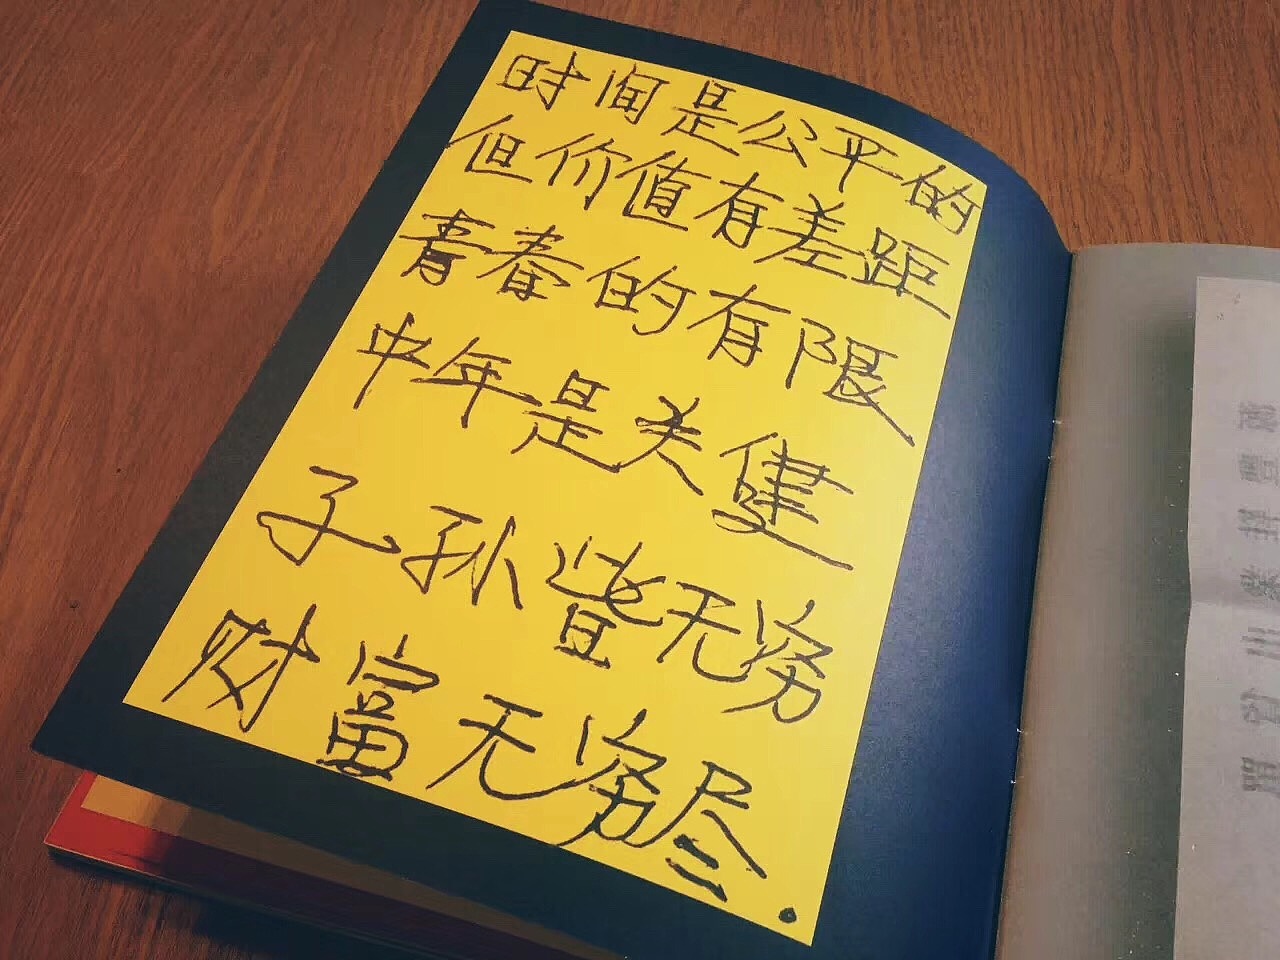 时间是公平的
但价值有差距
青春的有限
中年是关健
子孙皆无穷
财富无穷尽.